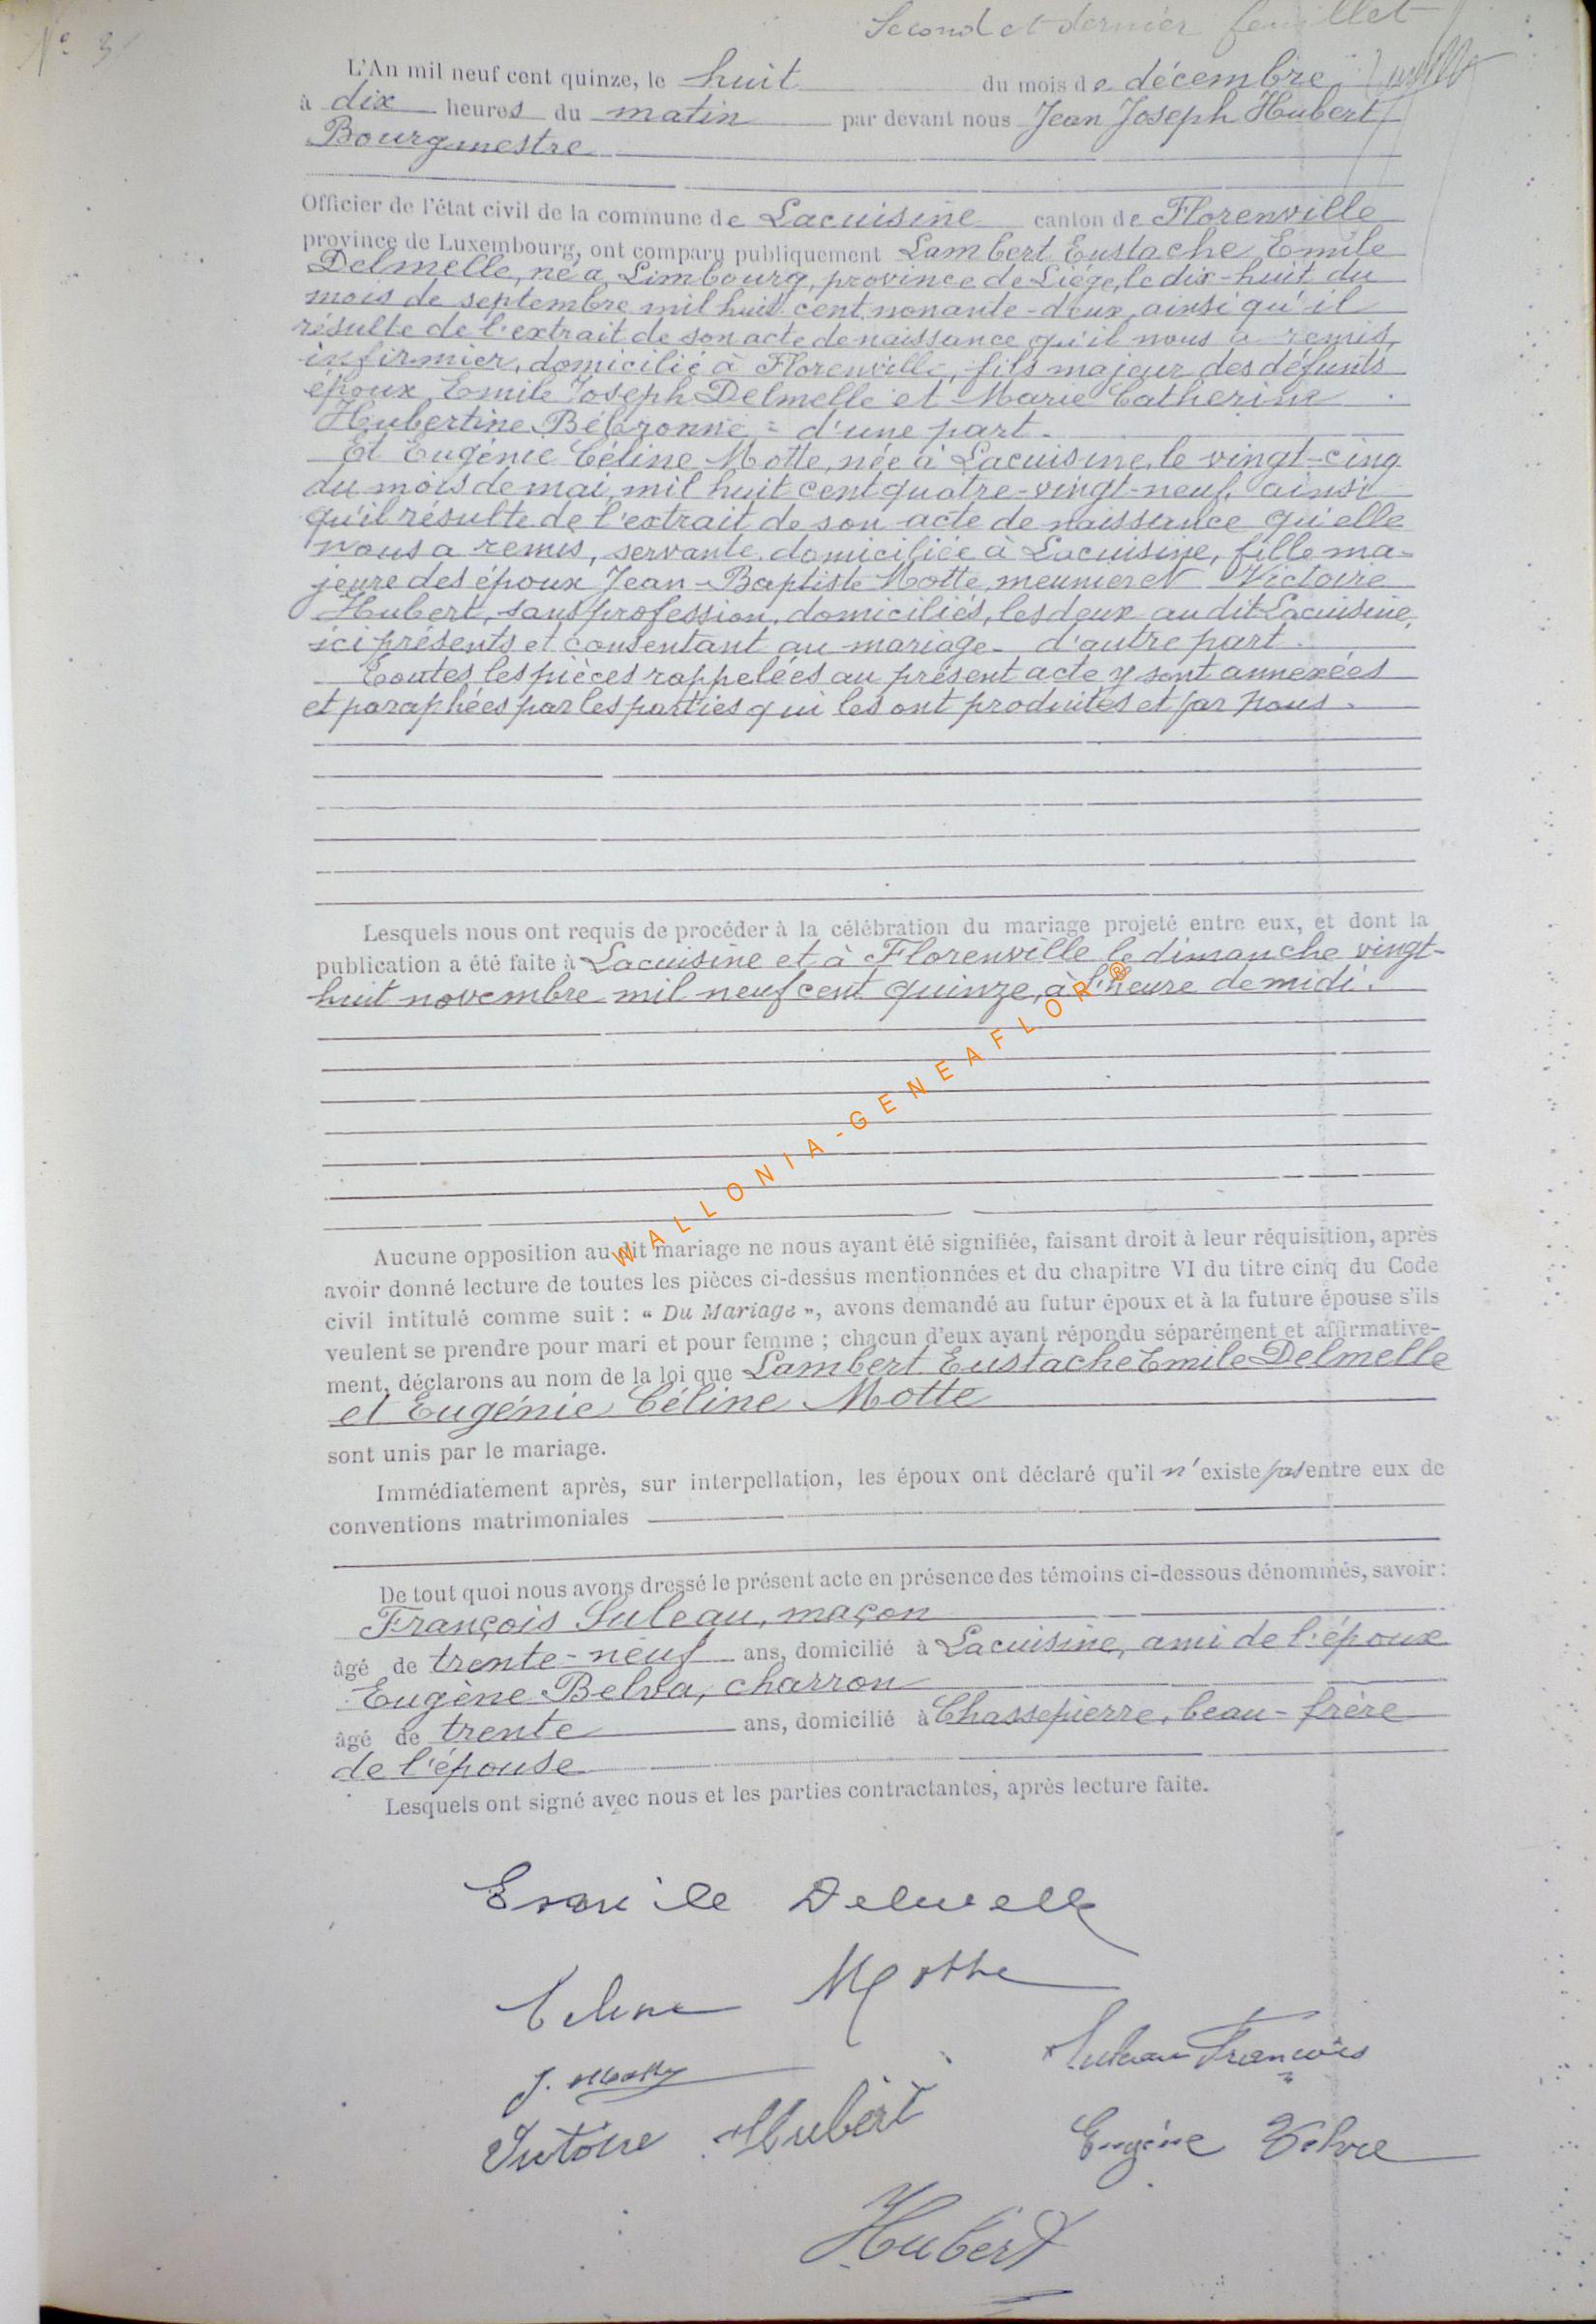 Second et dernier feuillet
N° 3
L'An mil neuf cent quinze, le huit du mois de décembre
à dix heures du matin par devant nous Jean Joseph Hubert
Bourgmestre
Officier de l'état civil de la commune de Lacuisine canton de Florenville
province de Luxembourg, ont comparu publiquement Lambert Eustache Emile
Delmelle, né à Limbourg, province de Liége, le dix-huit du
mois de septembre mil huit cent nonante-deux, ainsi qu'il
résulte de l'extrait de son acte de naissance qu'il nous a remis,
infirmier, domicilié à Florenville, fils majeur des défunts
époux Emile Joseph Delmelle et Marie Catherine
Hubertine Bébronne = d'une part.
Et Eugénie Céline Motte, née à Lacuisine, le vingt-cinq
du mois de mai mil huit cent quatre-vingt-neuf, ainsi
qu'il résulte de l'extrait de son acte de naissance qu'elle
nous a remis, servante, domiciliée à Lacuisine, fille ma-
jeure des époux Jean-Baptiste Motte, meunier et Victoire
Hubert, sans profession, domiciliés, les deux au dit Lacuisine,
ici présents et consentant au mariage - d'autre part.
Toutes les pièces rappelées au présent acte y sont annexées
et paraphées par les parties qui les ont produites et par nous.
Lesquels nous ont requis de procéder à la célébration du mariage projeté entre eux, et dont la
publication a été faite à Lacuisine et à Florenville le dimanche vingt-
huit novembre mil neuf cent quinze, à l'heure de midi.
WALLONIA-GENEAFLOR®
Aucune opposition au dit mariage ne nous ayant été signifiée, faisant droit à leur réquisition, après
avoir donné lecture de toutes les pièces ci-dessus mentionnées et du chapitre VI du titre cinq du Code
civil intitulé comme suit : « Du Mariage », avons demandé au futur époux et à la future épouse s'ils
veulent se prendre pour mari et pour femme ; chacun d'eux ayant répondu séparément et affirmative-
ment, déclarons au nom de la loi que Lambert Eustache Emile Delmelle
et Eugénie Céline Motte
sont unis par le mariage.
Immédiatement après, sur interpellation, les époux ont déclaré qu'il n'existe pas entre eux de
conventions matrimoniales
De tout quoi nous avons dressé le présent acte en présence des témoins ci-dessous dénommés, savoir :
François Suleau, maçon
âgé de trente-neuf ans, domicilié à Lacuisine, ami de l'époux
Eugène Belva, charron
âgé de trente ans, domicilié à Chassepierre, beau-frère
de l'épouse
Lesquels ont signé avec nous et les parties contractantes, après lecture faite.
Emile Delmelle
Céline Motte
Suleau François
J. Motte
Victoire Hubert
Eugène Belva
Hubert